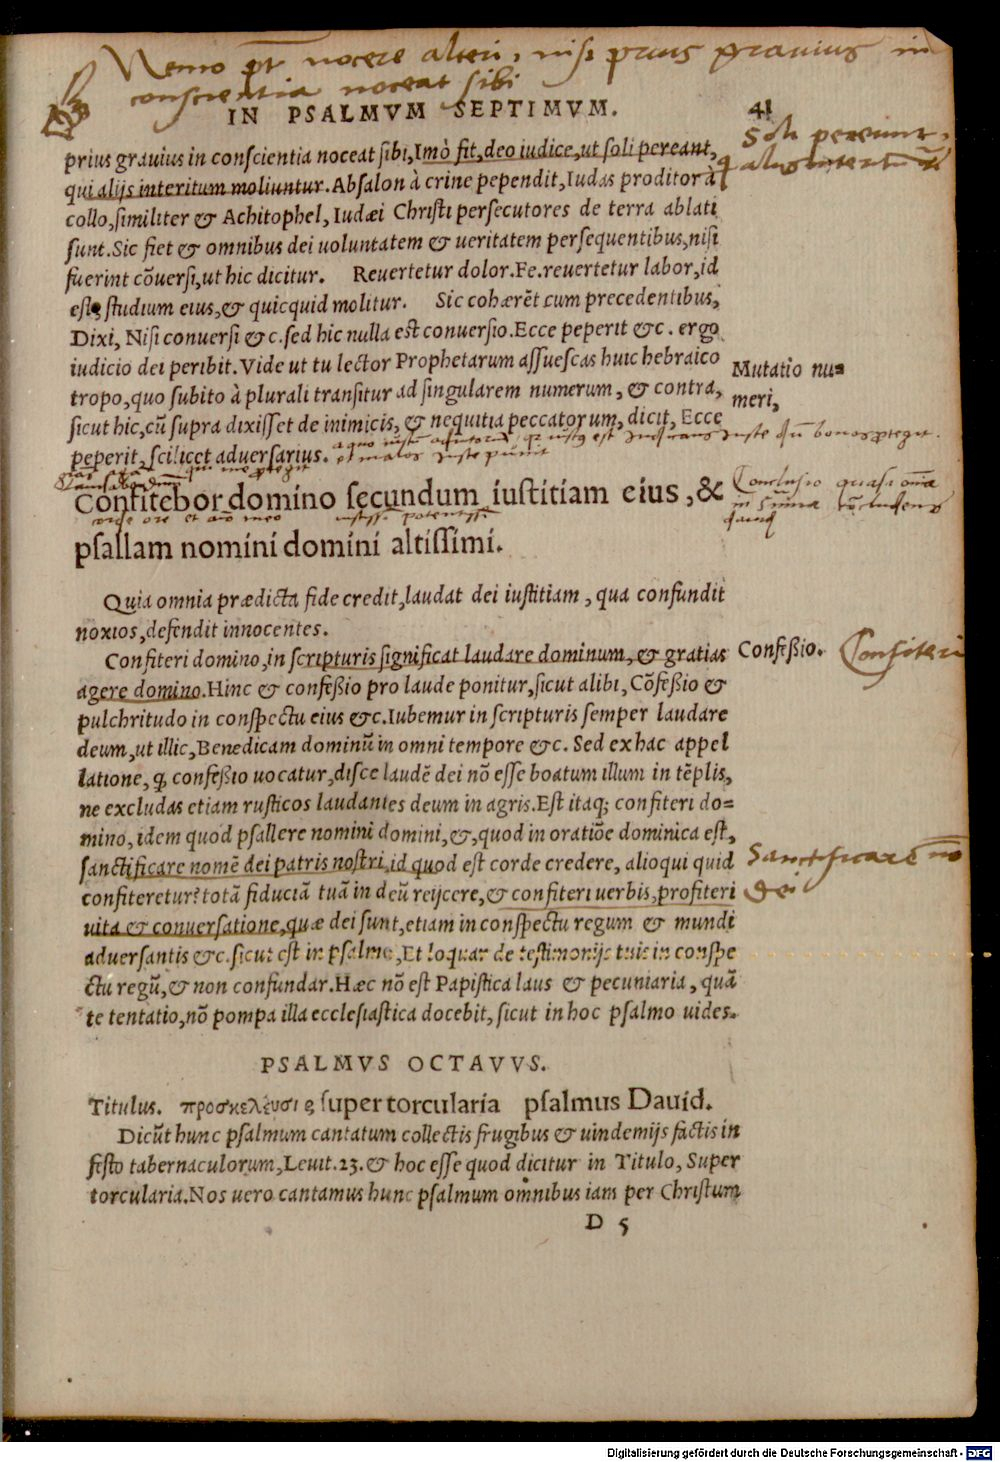 Nemo pt nocere alteri, nisi prius grauius in
conscientia noceat sibi
IN PSALMVM SEPTIMVM. 41
prius grauius in conscientia noceat sibi, Imò fit, deo iudice, ut soli pereant,
qui alijs interitum moliuntur. Absalon à crine pependit, Iudas proditor à
collo, similiter & Achitophel, Iudæi Christi persecutores de terra ablati
sunt. Sic fiet & omnibus dei uoluntatem & ueritatem persequentibus, nisi
fuerint cōuersi, ut hic dicitur. Reuertetur dolor. Fe. reuertetur labor, id
est, studium eius, & quicquid molitur. Sic cohærēt cum precedentibus,
Dixi, Nisi conuersi &c. sed hic nulla est conuersio. Ecce peperit &c. ergo
iudicio dei peribit. Vide ut tu lector Prophetarum assuescas huic hebraico
tropo, quo subito à plurali transitur ad singularem numerum, & contra,
sicut hic, cū supra dixisset de inimicis, & nequitia peccatorum, dicit, Ecce
peperit, scilicet aduersarius.
Soli pereunt,
Mutatio nu=
meri,
et malos iuste punit
Confitebor domino secundum iustitiam eius, &
Conclusio quasi
corde ore et
psallam nomini domini altissimi.
Quia omnia prædicta fide credit, laudat dei iustitiam, qua confundit
noxios, defendit innocentes.
Confiteri domino, in scripturis significat laudare dominum, & gratias
agere domino. Hinc & confeßio pro laude ponitur, sicut alibi, Cōfeßio &
pulchritudo in conspectu eius &c. Iubemur in scripturis semper laudare
deum, ut illic, Benedicam dominū in omni tempore &c. Sed ex hac appel
latione, ꝙ confeßio uocatur, disce laudē dei nō esse boatum illum in tēplis,
ne excludas etiam rusticos laudantes deum in agris. Est itaq; confiteri do=
mino, idem quod psallere nomini domini, &, quod in oratiōe dominica est,
sanctificare nomē dei patris nostri, id quod est corde credere, alioqui quid
confiteretur? totā fiduciā tuā in deū reijcere, & confiteri uerbis, profiteri
uita & conuersatione, quæ dei sunt, etiam in conspectu regum & mundi
aduersantis &c. sicut est in psalmo, Et loquar de testimonijs tuis in conspe
ctu regū, & non confundar. Hæc nō est Papistica laus & pecuniaria, quā
te tentatio, nō pompa illa ecclesiastica docebit, sicut in hoc psalmo uides.
Confeßio.
Confiteri
Sanctificare nō
Dei
PSALMVS OCTAVVS.
Titulus. προσκελέυσις super torcularia psalmus Dauid.
Dicūt hunc psalmum cantatum collectis frugibus & uindemijs factis in
festo tabernaculorum, Leuit. 23. & hoc esse quod dicitur in Titulo, Super
torcularia. Nos uero cantamus hunc psalmum omnibus iam per Christum
D 5
Digitalisierung gefördert durch die Deutsche Forschungsgemeinschaft - DFG